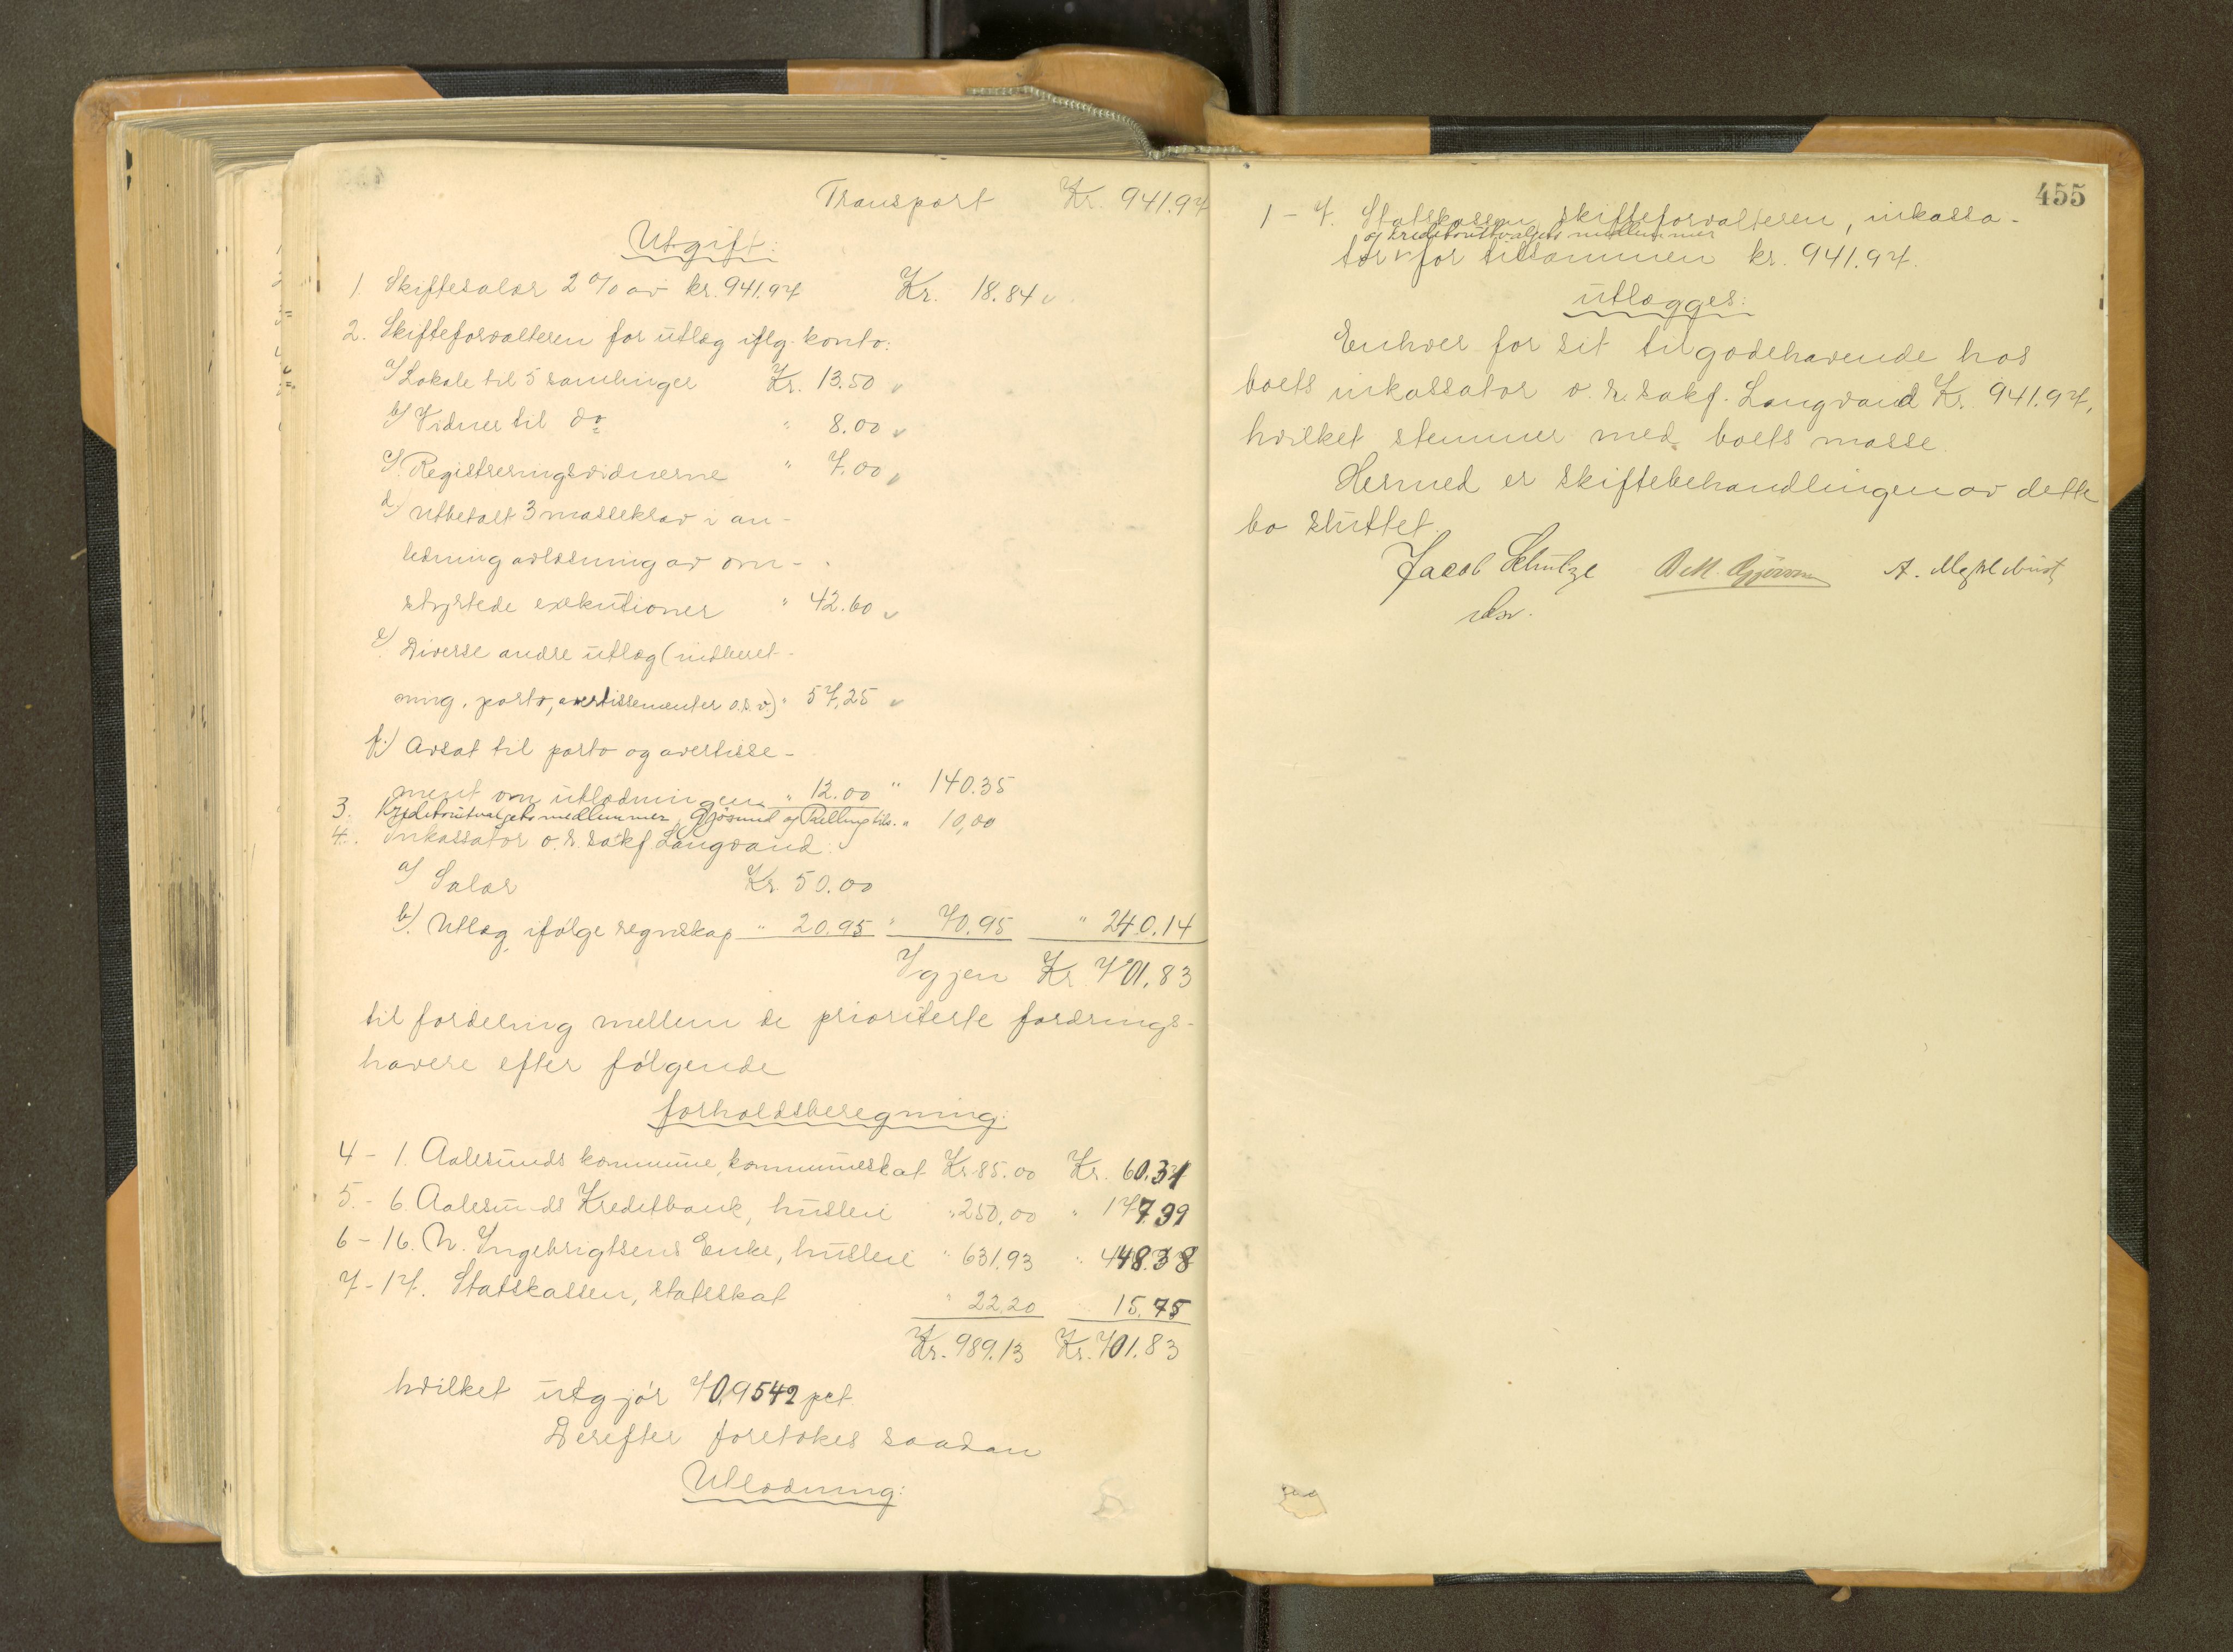 Transport Kr. 941.97
Utgift:
1. Skiftesalær 2 % av kr. 941.97 Kr. 18.84
2. Skifteforvalteren for utlæg iflg. konto:
a/ Lokale til 5 samlinger Kr. 13.50
b/ Vidner til do " 8.00
c/ Registreringsvidnerne " 7.00
d/ Utbetalt 3 massekrav i an-
ledning avløsning av om-
styrtede exekutioner " 42.60
e/ Diverse andre utlæg (indberet-
ning, porto, avertissementer o.s.v.) " 57,25
f.) Avsat til porto og avertisse-
ment om utlodningen " 12.00 " 140.35
3. Kreditorutvalgets medlemmer, Gjøsund og Relling tils. " 10,00
4. Inkassator o.r. sakf. Langvand:
a/ Salær Kr. 50.00
b/. Utlæg ifølge regnskap " 20.95 " 70.95 " 240.14
Igjen Kr. 701.83
til fordeling mellem de prioriterte fordrings-
havere efter følgende
forholdsberegning:
4 - 1. Aalesunds kommune, kommuneskat Kr. 85.00 Kr. 60.31
5. - 6. Aalesunds Kreditbank, husleie " 250,00 " 177.39
6 - 16. N. Ingebrigtsens Enke, husleie " 631.93 " 448.38
7 - 17. Statskassen, statsskat " 22.20 15.75
Kr. 989.13 Kr. 701.83
hvilket utgjør 70,9542 pct
Derefter foretokes saadan
Utlodning:
455
1 - 7. Statskassen, skifteforvalteren, inkassa-
og kreditorutvalgets medlemmer
tor for tilsammen kr. 941.97.
utlægges:
Enhver for sit tilgodehavende hos
boets inkassator o. r. sakf. Langvand Kr. 941.97,
hvilket stemmer med boets masse.
Hermed er skiftebehandlingen av dette
bo sluttet.
Jacob Schutze